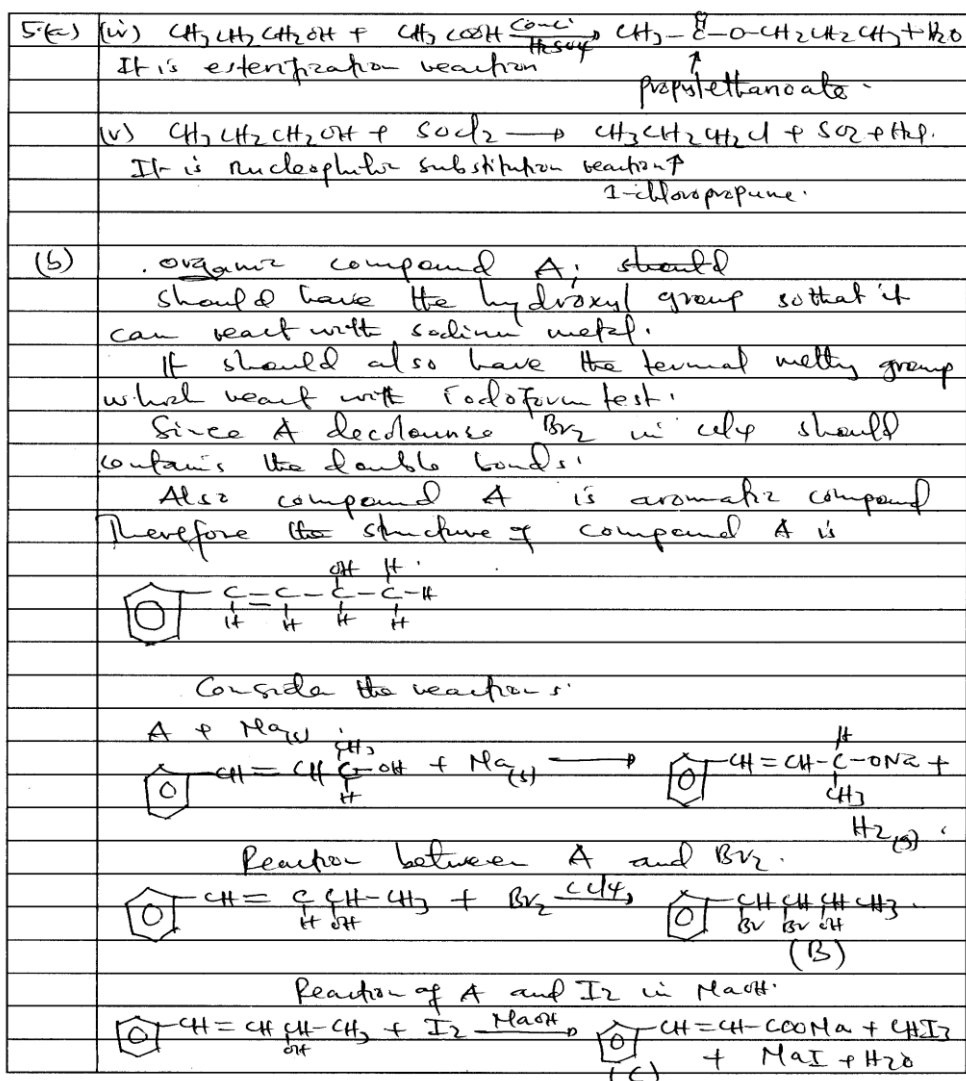 5.(a) (iv) CH3CH2CH2OH + CH3COOH —Conc. H2SO4→ CH3-C(=O)-O-CH2CH2CH3 + H2O
It is esterification reaction
↑
propylethanoate.
(v) CH3CH2CH2OH + SOCl2 → CH3CH2CH2Cl + SO2 + HCl.
It is nucleophilic substitution reaction ↑
1-chloropropane.
(b) . organic compound A; should
should have the hydroxyl group so that it
can react with sodium metal.
It should also have the termal methy group
which react with Iodoform test.
Since A decolourise Br2 in CCl4 should
contains the double bonds.
Also compound A is aromatic compound
Therefore the structure of compound A is
OH H
C = C - C - C - H
H H H H
Consider the reactions.
A + Na(s)
CH3
CH = CH C - OH + Na(s) → CH = CH - C - ONa +
H H CH3
H2(g).
Reaction between A and Br2.
CH = C CH - CH3 + Br2 —CCl4→ CH CH CH CH3.
H OH Br Br OH
(B)
Reaction of A and I2 in NaOH.
CH = CH CH - CH3 + I2 —NaOH→ CH = CH - COONa + CHI3
OH + NaI + H2O
(C)